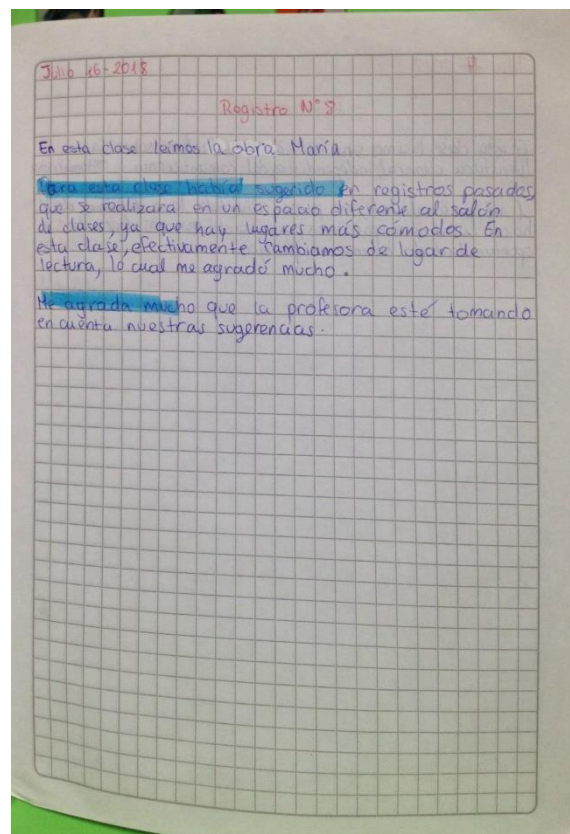 Julio 16-2018
Registro N°8
En esta clase leímos la obra: María
Para esta clase había sugerido en registros pasados,
que se realizara en un espacio diferente al salón
de clases, ya que hay lugares más cómodos. En
esta clase, efectivamente cambiamos de lugar de
lectura, lo cual me agradó mucho.
Me agrada mucho que la profesora esté tomando
en cuenta nuestras sugerencias.